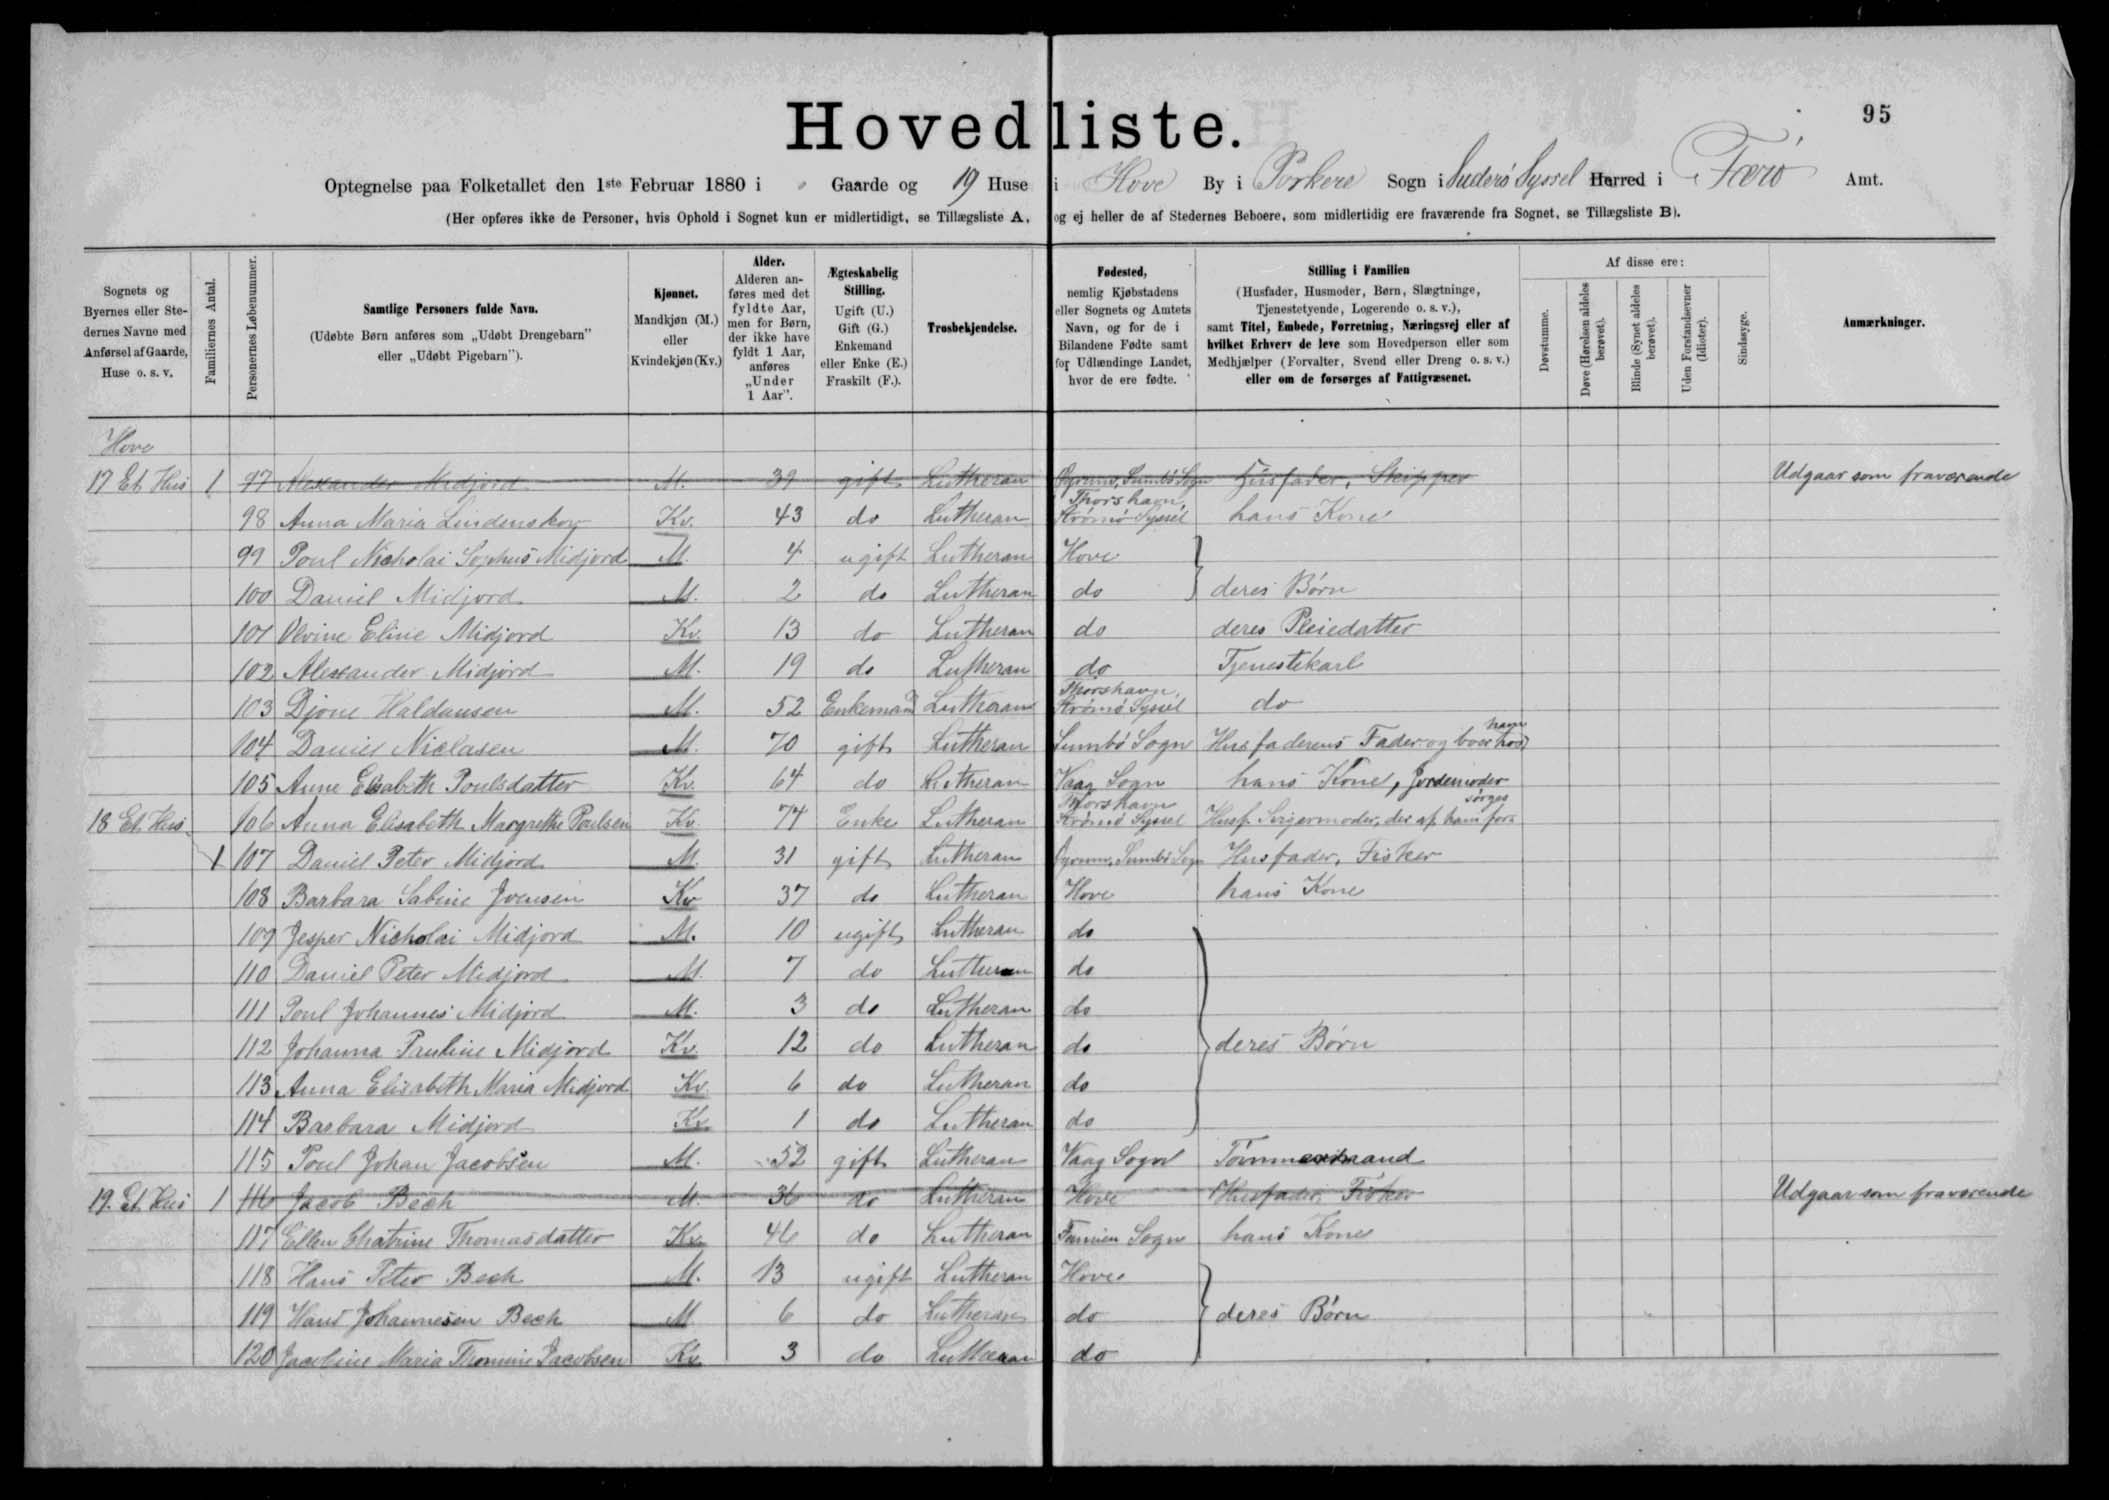 95
Hovedliste.
Optegnelse paa Folketallet den 1ste Februar 1880 i " Gaarde og 19 Huse i Hove By i Porkere Sogn i Suderö Syssel Herred i Færö Amt.
(Her opføres ikke de Personer, hvis Ophold i Sognet kun er midlertidigt, se Tillægsliste A, og ej heller de af Stedernes Beboere, som midlertidig ere fraværende fra Sognet, se Tillægsliste B).
Sognets og Byernes eller Stedernes Navne med Anførsel af Gaarde, Huse o. s. v.
Familiernes Antal.
Personernes Løbenummer.
Samtlige Personers fulde Navn.
(Udøbte Børn anføres som „Udøbt Drengebarn" eller „Udøbt Pigebarn").
Kjønnet.
Mandkjøn (M.) eller Kvindekjøn (Kv.)
Alder.
Alderen anføres med det fyldte Aar, men for Børn, der ikke have fyldt 1 Aar, anføres „Under 1 Aar".
Ægteskabelig Stilling.
Ugift (U.) Gift (G.) Enkemand eller Enke (E.) Fraskilt (F.).
Trosbekjendelse.
Fødested,
nemlig Kjøbstadens eller Sognets og Amtets Navn, og for de i Bilandene Fødte samt for Udlændinge Landet, hvor de ere fødte.
Stilling i Familien
(Husfader, Husmoder, Børn, Slægtninge, Tjenestetyende, Logerende o. s. v.),
samt Titel, Embede, Forretning, Næringsvej eller af hvilket Erhverv de leve som Hovedperson eller som Medhjælper (Forvalter, Svend eller Dreng o. s. v.) eller om de forsørges af Fattigvæsenet.
Af disse ere:
Døvstumme.
Døve (Hørelsen aldeles berøvet).
Blinde (Synet aldeles berøvet).
Uden Forstandsevner (Idioter).
Sindssyge.
Anmærkninger.
Hove
17 Et Hus 1 97 Alexander Midjord M. 39 gift Lutheran Sumbö Sogn Husfader, Skipper Udgaar som fraværende
98 Anna Maria Lindenskov Kv. 43 do Lutheran Thorshavn, Strömö Syssel hans Kone
99 Poul Nicholai Sophus Midjord M. 4 ugift Lutheran Hove
100 Daniel Midjord M. 2 do Lutheran do deres Börn
101 Olvine Eline Midjord Kv. 13 do Lutheran do deres Pleiedatter
102 Alexander Midjord M. 19 do Lutheran do Tjenestekarl
103 Djone Haldansen M. 52 Enkemand Lutheran Thorshavn, Strömö Syssel do
104 Daniel Niclasen M. 70 gift Lutheran Sumbö Sogn Husfaderens Fader og boer hos ham
105 Anne Elisabeth Poulsdatter Kv. 64 do Lutheran Vaag Sogn hans Kone, Jordemoder
18 Et Hus 106 Anna Elisabeth Margrethe Poulsen Kv. 74 Enke Lutheran Thorshavn Strömö Syssel Husf. Svigermoder, der af ham forsörges
1 107 Daniel Peter Midjord M. 31 gift Lutheran Sumbö Sogn Husfader, Fisker
108 Barbara Sabine Joensen Kv 37 do Lutheran Hove hans Kone
109 Jesper Nicholai Midjord M. 10 ugift Lutheran do
110 Daniel Peter Midjord M. 7 do Lutheran do
111 Poul Johannes Midjord M. 3 do Lutheran do
112 Johanna Pauline Midjord Kv. 12 do Lutheran do deres Börn
113 Anna Elisabeth Maria Midjord Kv. 6 do Lutheran do
114 Barbara Midjord Kv. 1 do Lutheran do
115 Poul Johan Jacobsen M. 52 gift Lutheran Vaag Sogn Tömmermand
19. Et Hus 1 116 Jacob Bech M. 36 do Lutheran Hove Husfader, Fisker Udgaar som fraværende
117 Ellen Chatrine Thomasdatter Kv. 46 do Lutheran Famien Sogn hans Kone
118 Hans Peter Bech M. 13 ugift Lutheran Hove
119 Hans Johannesen Bech M 6 do Lutheran do deres Börn
120 Jacobine Maria Thomine Jacobsen Kv. 3 do Lutheran do